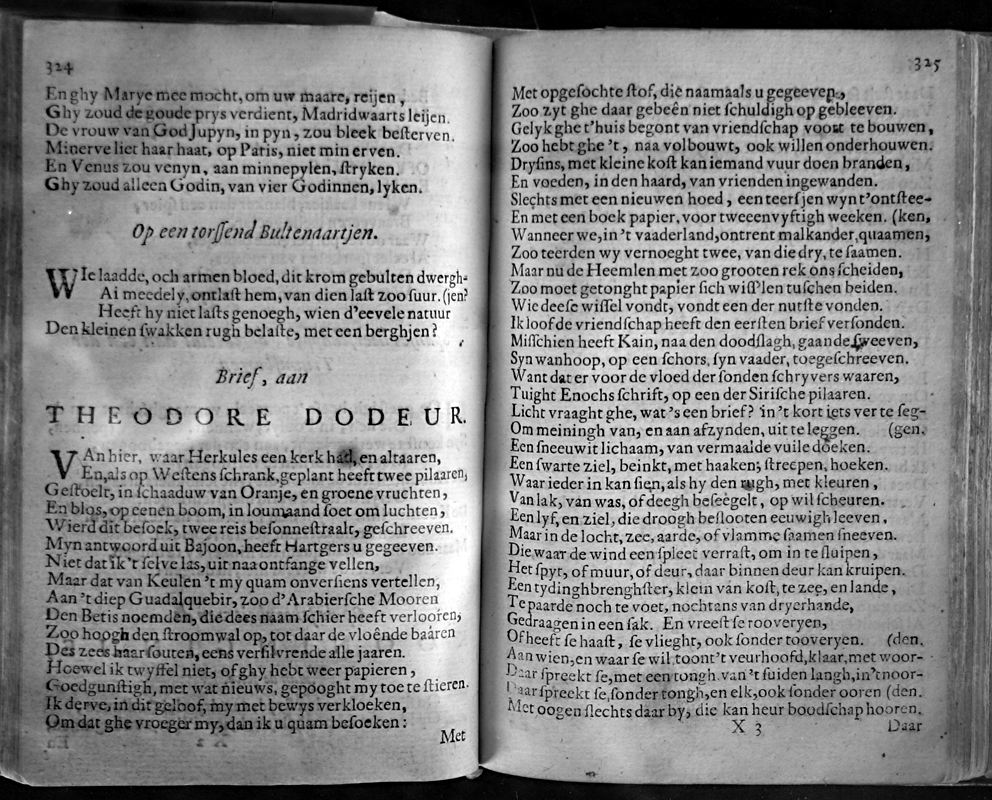 324
En ghy Marye mee mocht, om uw maare, reijen,
Ghy zoud de goude prys verdient, Madridwaarts leijen.
De vrouw van God Jupyn, in pyn, zou bleek beſterven.
Minerve liet haar haat, op Paris, niet min erven.
En Venus zou venyn, aan minnepylen, ſtryken.
Ghy zoud alleen Godin, van vier Godinnen, lyken.
Op een torſſend Bultenaartjen.
WIe laadde, och armen bloed, dit krom gebulten dwergh-
Ai meedely, ontlaſt hem, van dien laſt zoo ſuur. (jen?
Heeft hy niet laſts genoegh, wien d'eevele natuur
Den kleinen ſwakken rugh belaſte, met een berghjen?
Brief, aan
THEODORE DODEUR.
VAn hier, waar Herkules een kerk had, en altaaren,
En, als op Weſtens ſchrank, geplant heeft twee pilaaren,
Geſtoelt, in ſchaaduw van Oranje, en groene vruchten,
En blos, op eenen boom, in loumaand ſoet om luchten,
Wierd dit beſoek, twee reis beſonneſtraalt, geſchreeven.
Myn antwoord uit Bajoon, heeft Hartgers u gegeeven.
Niet dat ik't ſelve las, uit naa ontfange vellen,
Maar dat van Keulen 't my quam onverſiens vertellen,
Aan 't diep Guadalquebir, zoo d'Arabierſche Mooren
Den Betis noemden, die dees naam ſchier heeft verlooren,
Zoo hoogh den ſtroom wal op, tot daar de vloênde baâren
Des zees haar ſouten, eens verſilvrende alle jaaren.
Hoewel ik twyffel niet, of ghy hebt weer papieren,
Goedgunſtigh, met wat nieuws, gepooght my toe te ſtieren.
Ik derve, in dit geloof, my met bewys verkloeken,
Om dat ghe vroeger my, dan ik u quam beſoeken:
Met
325
Met opgeſochte ſtof, die naamaals u gegeeven,
Zoo zyt ghe daar gebeên niet ſchuldigh op gebleeven.
Gelyk ghe t'huis begont van vriendſchap voort te bouwen,
Zoo hebt ghe 't, naa volbouwt, ook willen onderhouwen.
Dryſins, met kleine koſt kan iemand vuur doen branden,
En voeden, in den haard, van vrienden ingewanden.
Slechts met een nieuwen hoed, een teerſjen wyn t'ontſtee-
En met een boek papier, voor tweeenvyftigh weeken. (ken,
Wanneer we, in 't vaaderland, ontrent malkander, quaamen,
Zoo teerden wy vernoeght twee, van die dry, te ſaamen.
Maar nu de Heemlen met zoo grooten rek ons ſcheiden,
Zoo moet getonght papier ſich wiſſ'len tuſchen beiden.
Wie deeſe wiſſel vondt, vondt een der nutſte vonden.
Ik loof de vriendſchap heeft den eerſten brief verſonden.
Miſſchien heeft Kain, naa den doodſlagh, gaande ſweeven,
Syn wanhoop, op een ſchors, ſyn vaader, toegeſchreeven.
Want dat er voor de vloed der ſonden ſchryvers waaren,
Tuight Enochs ſchrift, op een der Siriſche pilaaren.
Licht vraaght ghe, wat 's een brief? in 't kort iets ver te ſeg-
Om meiningh van, en aan afzynden, uit te leggen. (gen.
Een ſneeuwit lichaam, van vermaalde vuile doeken.
Een ſwarte ziel, beinkt, met haaken, ſtreepen, hoeken.
Waar ieder in kan ſien, als hy den rugh, met kleuren,
Van lak, van was, of deegh beſeegelt, op wil ſcheuren.
Een lyf, en ziel, die droogh beſlooten eeuwigh leeven,
Maar in de locht, zee, aarde, of vlamme ſaamen ſneeven.
Die waar de wind een ſpleet verraſt, om in te ſluipen,
Het ſpyt, of muur, of deur, daar binnen deur kan kruipen.
Een tydinghbrenghſter, klein van koſt, te zee, en lande,
Te paarde noch te voet, nochtans van dryerhande,
Gedraagen in een ſak. En vreeſt ſe rooveryen,
Of heeft ſe haaſt, ſe vlieght, ook ſonder tooveryen. (den.
Aan wien, en waar ſe wil, toont't veurhoofd, klaar, met woor-
Daar ſpreekt ſe, met een tongh van 't ſuiden langh, in't noor-
Daar ſpreekt ſe, ſonder tongh, en elk, ook ſonder ooren (den.
Met oogen ſlechts daar by, die kan heur boodſchap hooren.
X 3
Daar